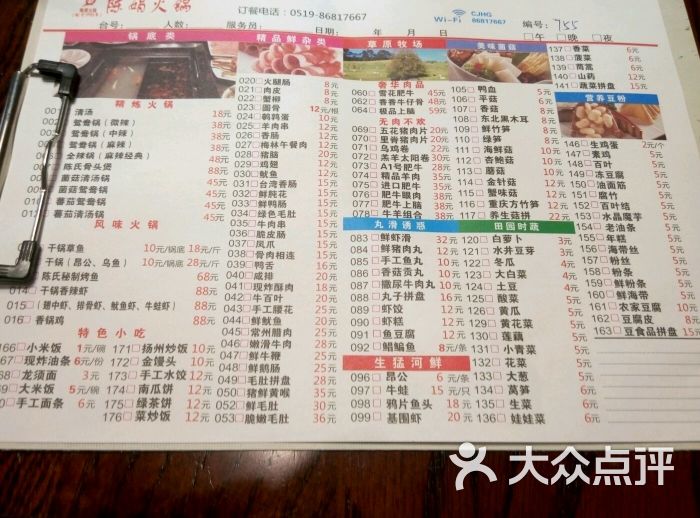 陈妈火锅
订餐电话：0519-86817667
CJHG
Wi-Fi 86817667
编号：755
台号： 人数： 服务员： 年 月 日 □午 □晚 □夜
锅底类
精品鲜杂类
草原牧场
美味菌菇
精炼火锅
清汤 18元
鸳鸯锅（微辣） 38元
鸳鸯锅（中辣） 38元
鸳鸯锅（麻辣） 38元
金辣锅（麻辣经典） 48元
陈氏骨头煲
菌菇清汤锅
菌菇鸳鸯锅 45元
番茄鸳鸯锅 45元
番茄清汤锅
风味火锅
干锅草鱼 10元/锅底 18元/斤
干锅（昂公、乌鱼） 10元/锅底 28元/斤
陈氏秘制烤鱼 68元
干锅香辣虾 88元
015□（翅中虾、排骨虾、鱿鱼虾、牛蛙虾） 88元
016□香锅鸡 88元
特色小吃
166□小米饭 1元/碗
167□现炸油条 6元/份
168□龙须面 3元
169□大米饭 5元/碗
手工面条 6元
171□扬州炒饭 10元
172□金馒头 10元
173□手工水饺 12元
174□南瓜饼 12元
175□绿茶饼 10元
176□菜炒饭 12元
020□火腿肠 8元
021□肉皮 8元
022□蟹柳 8元
023□圈骨 12元/根
024□鹌鹑蛋 10元
025□羊肉串
026□香肠
027□梅林午餐肉
028□猪脑
029□鸡翅
030□鱿鱼
031□台湾香肠
032□鲜肫花
033□鲜鸭肠
034□绿色毛肚
035□牛肉串
036□脆皮肠
037□凤爪
038□骨肉相连
039□鸭舌
040□咸排
041□现炸酥肉
042□牛百叶
043□手工腰花
044□鲜鱿鱼
045□常州腊肉
046□嫩滑牛肉
047□鲜牛鞭
048□鲜鹅肠
049□毛肚拼盘 28元
050□猪鲜黄喉 35元
052□鲜毛肚 30元
053□脆嫩毛肚 36元
奢华肉品
060□雪花肥牛 45元
062□香香牛仔骨 48元
064□极品上脑 59元
无肉不欢
069□五花猪肉片 20元
070□里脊猪肉片 20元
071□乌鸡卷 22元
072□羔羊太阳卷 30元
073□A1号肥牛 28元
074□精品羊肉 35元
075□进口肥牛 35元
076□肥牛眼肉 38元
077□肥牛上脑 38元
078□牛羊组合 38元
丸滑诱惑
083□鲜虾滑 32元
084□鲜猪肉丸 12元
085□手工鱼丸 10元
086□香菇贡丸 10元
087□撒尿牛肉丸 10元
088□丸子拼盘 18元
089□虾饺 12元
090□虾糕 12元
091□鱼豆腐 12元
092□鲳鳊鱼 8元
生猛河鲜
096□昂公 6元/条
097□牛蛙 15元/只
098□鸦片鱼头 18元
099□基围虾 20元
105□鸭血 5元
106□平菇 6元
107□香菇 8元
108□东北黑木耳 8元
109□鲜竹笋 8元
110□绿笋 8元
111□海鲜菇 8元
112□杏鲍菇 8元
113□蘑菇 8元
114□金针菇 8元
115□蟹味菇 8元
116□重庆方竹笋 8元
117□养生菇拼 22元
田园时蔬
120□白萝卜 3元
121□水井豆芽 3元
122□冬瓜 4元
123□大白菜 4元
124□土豆 4元
125□酸菜 5元
126□黄瓜 5元
129□黄花菜 5元
130□莲藕 5元
131□小青菜 5元
132□花菜 5元
133□大葱 5元
134□莴笋 6元
135□生菜 5元
136□娃娃菜 6元
137□香菜 6元
138□菠菜 6元
139□茼蒿 6元
140□山药 12元
141□蔬菜拼盘 15元
营养豆粉
146□生鸡蛋 2元/个
147□素鸡 5元
148□百叶 5元
149□冻豆腐 5元
150□油面筋 5元
151□腐竹 5元
152□百叶结 5元
153□水晶魔芋 5元
154□老油条 5元
155□年糕 5元
156□海带丝 5元
157□粉丝 5元
158□粉条 5元
160□鲜海带 5元
161□农家豆腐 10元
162□豆腐皮 10元
163□豆食品拼盘 15元
大众点评